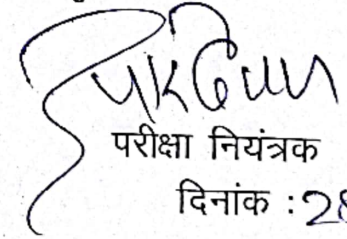 परीक्षा नियंत्रक
दिनांक : 28